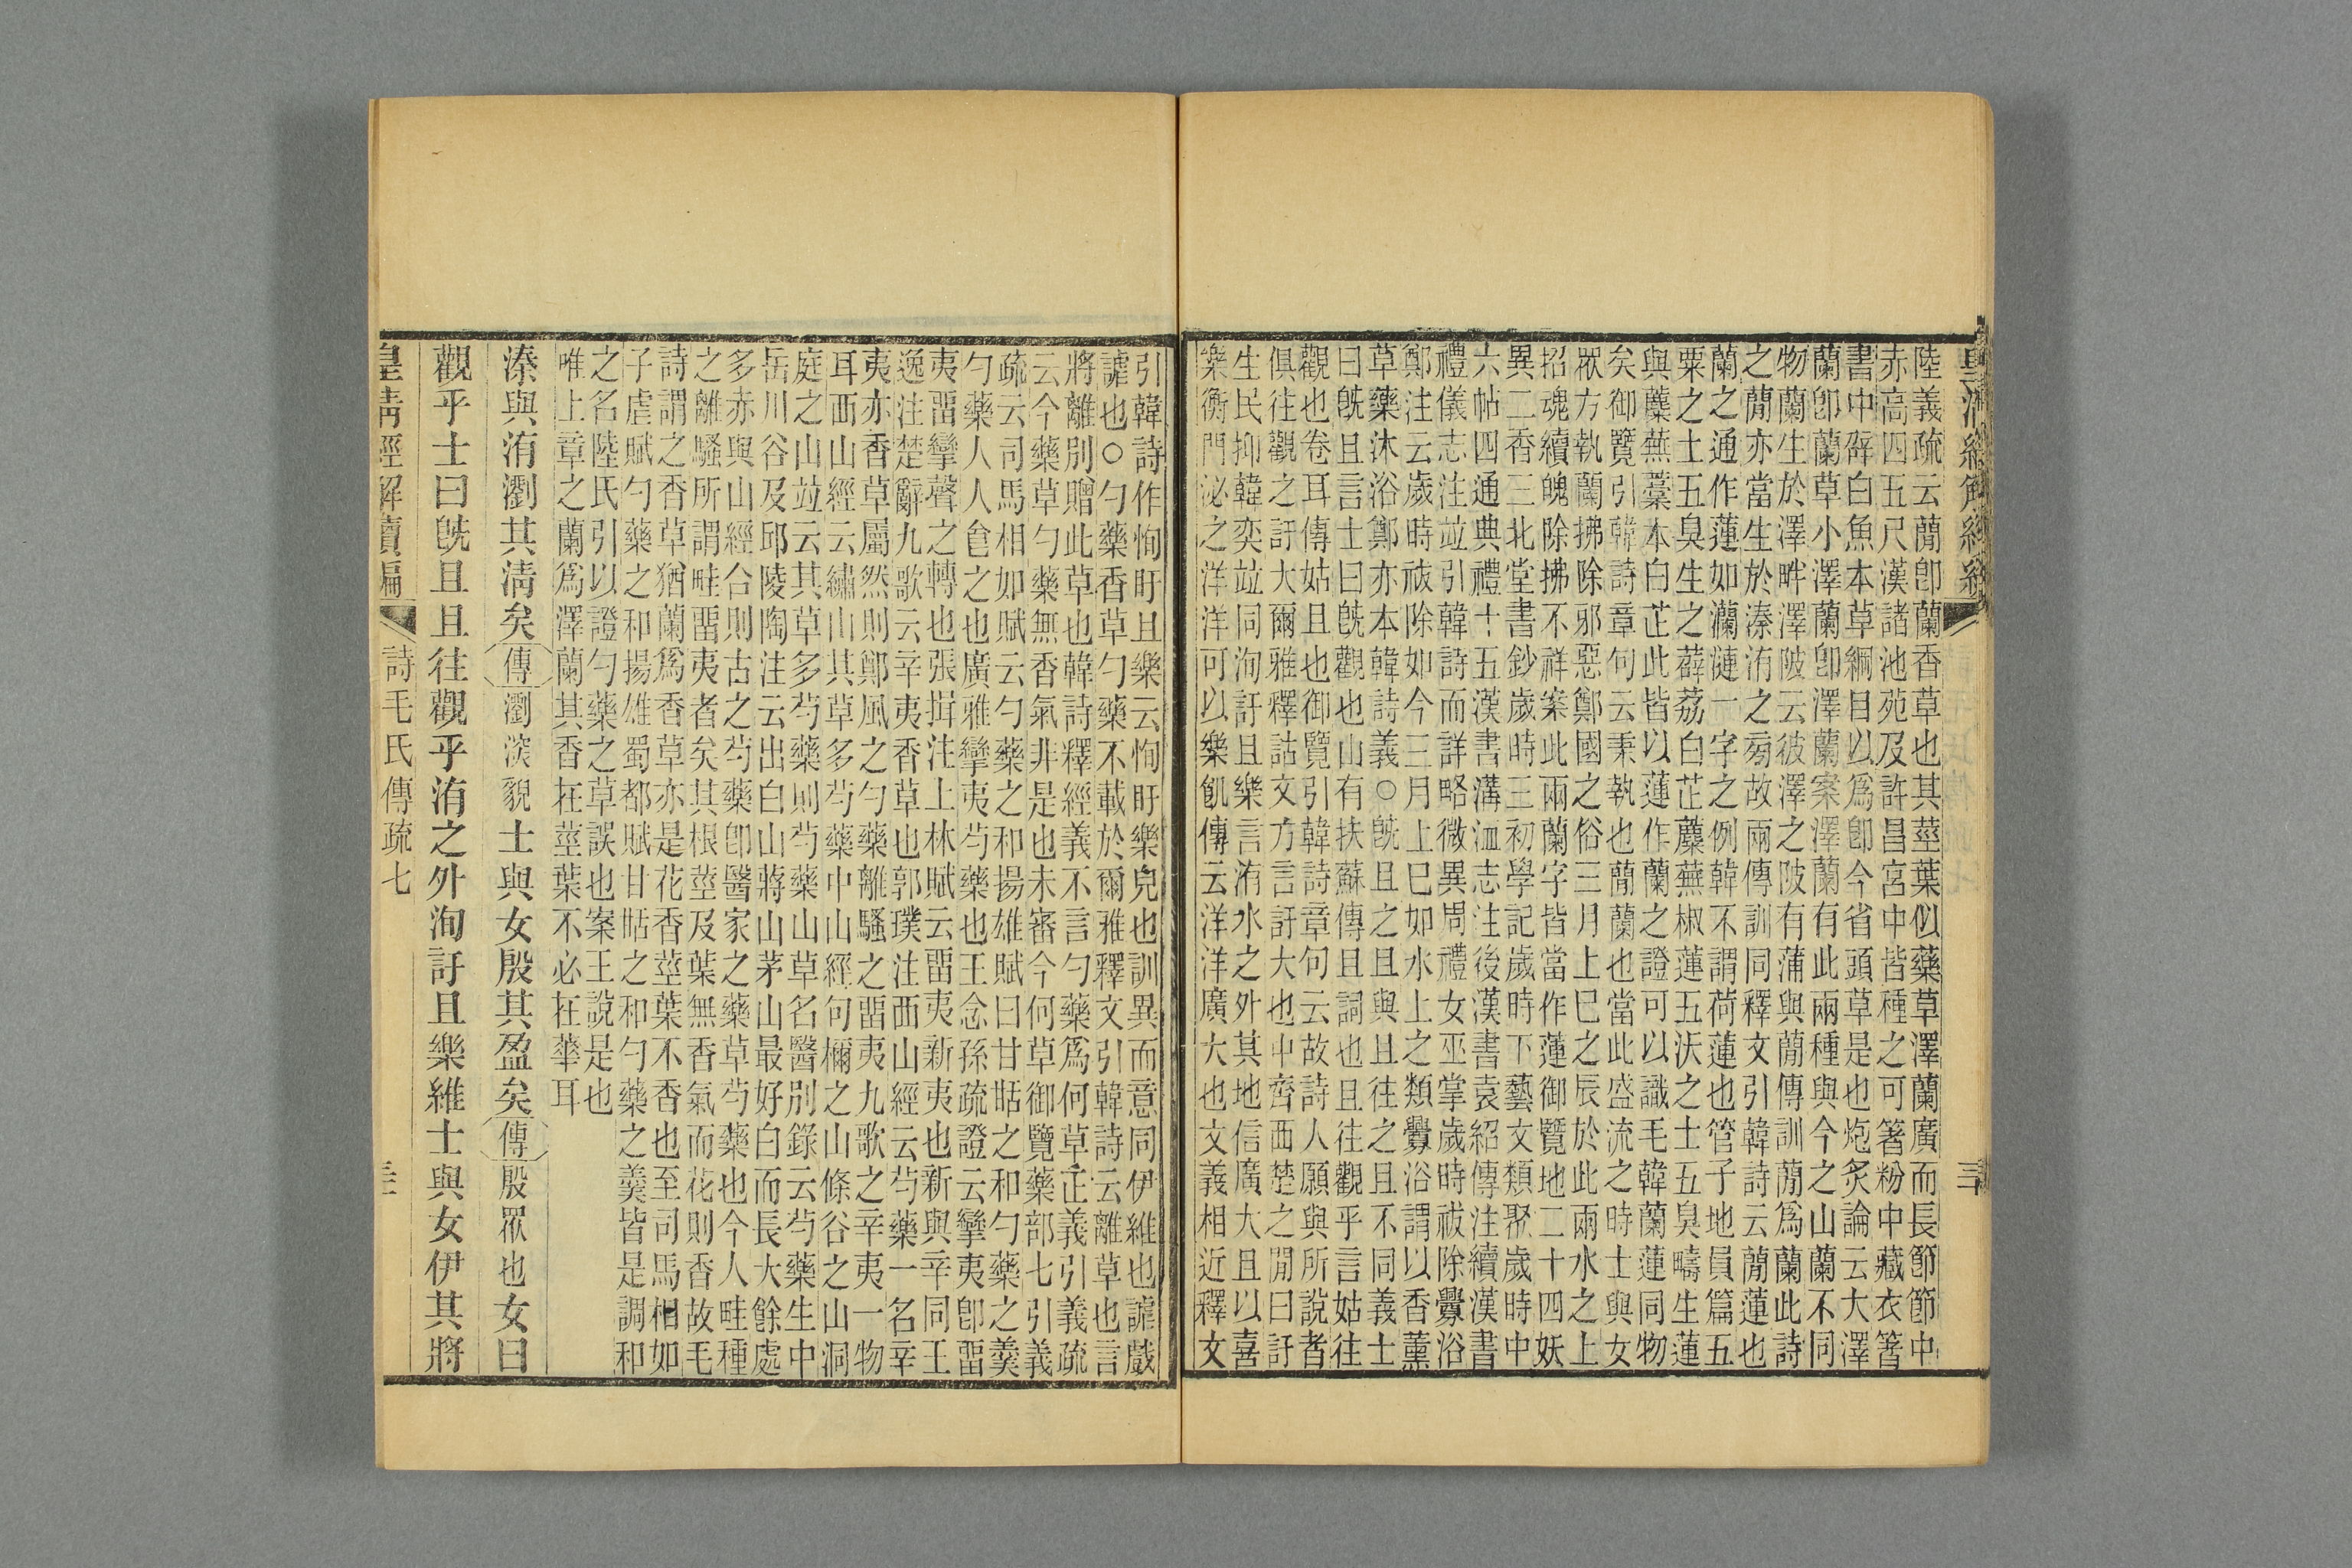 皇清經解續編
三
陸義疏云蕑卽蘭香草也其莖葉似藥草澤蘭廣而長節節中
赤高四五尺漢諸池苑及許昌宮中皆種之可著粉中藏衣箸
書中辟白魚本草綱目以爲卽今省頭草是也炮炙論云大澤
蘭卽蘭草小澤蘭卽澤蘭案澤蘭有此兩種與今之山蘭不同
物蘭生於澤畔澤陂云彼澤之陂有蒲與蕑傳訓蕑爲蘭此詩
之蕑亦當生於溱洧之旁故兩傳訓同釋文引韓詩云蕑蓮也
蘭之通作蓮如瀾漣一字之例韓不謂荷蓮也管子地員篇五
粟之土五臭生之薜荔白芷蘪蕪椒蓮五沃之土五臭疇生蓮
與蘪蕪藁本白芷此皆以蓮作蘭之證可以識毛韓蘭蓮同物
矣御覽引韓詩章句云秉執也蕑蘭也當此盛流之時士與女
眾方執蘭拂除邪惡鄭國之俗三月上巳之辰於此兩水之上
招魂續魄除拂不祥案此兩蘭字皆當作蓮御覽地二十四妖
異二香三北堂書鈔歲時三初學記歲時下藝文類聚歲時中
六帖四通典禮十五漢書溝洫志注後漢書袁紹傳注續漢書
禮儀志注竝引韓詩而詳略微異周禮女巫掌歲時祓除釁浴
鄭注云歲時祓除如今三月上巳如水上之類釁浴謂以香薰
草藥沐浴鄭亦本韓詩義○旣且之且與且往之且不同義士
曰旣且言士曰旣觀也山有扶蘇傳且詞也且往觀乎言姑往
觀也卷耳傳姑且也御覽引韓詩章句云故詩人願與所說者
俱往觀之訏大爾雅釋詁文方言訏大也中齊西楚之閒曰訏
生民抑韓奕竝同洵訏且樂言洧水之外其地信廣大且以喜
樂衡門泌之洋洋可以樂飢傳云洋洋廣大也文義相近釋文
引韓詩作恂盱且樂云恂盱樂皃也訓異而意同伊維也謔戲
謔也○勺藥香草勺藥不載於爾雅釋文引韓詩云離草也言
將離別贈此草也韓詩釋經義不言勺藥爲何草正義引義疏
云今藥草勺藥無香氣非是也未審今何草御覽藥部七引義
疏云司馬相如賦云勺藥之和揚雄賦曰甘甛之和勺藥之羹
勺藥人人㿝之也廣雅攣夷芍藥也王念孫疏證云攣夷卽畱
夷畱攣聲之轉也張揖注上林賦云畱夷新夷也新與辛同王
逸注楚辭九歌云辛夷香草也郭璞注西山經云芍藥一名辛
夷亦香草屬然則鄭風之勺藥離騷之畱夷九歌之辛夷一物
耳西山經云繡山其草多芍藥中山經句檷之山條谷之山洞
庭之山竝云其草多芍藥則芍藥山草名醫別錄云芍藥生中
岳川谷及邱陵陶注云出白山蔣山茅山最好白而長大餘處
多赤與山經合則古之芍藥卽醫家之藥草芍藥也今人畦種
之離騷所謂畦畱夷者矣其根莖及葉無香氣而花則香故毛
詩謂之香草猶蘭爲香草亦是花香莖葉不香也至司馬相如
子虛賦勺藥之和揚雄蜀都賦甘甛之和勺藥之羹皆是調和
之名陸氏引以證勺藥之草誤也案王說是也
唯上章之蘭爲澤蘭其香在莖葉不必在華耳
溱與洧瀏其淸矣傳瀏深貌士與女殷其盈矣傳殷眾也女曰
觀乎士曰旣且且往觀乎洧之外洵訏且樂維士與女伊其將
皇清經解續編
詩毛氏傳疏七
三